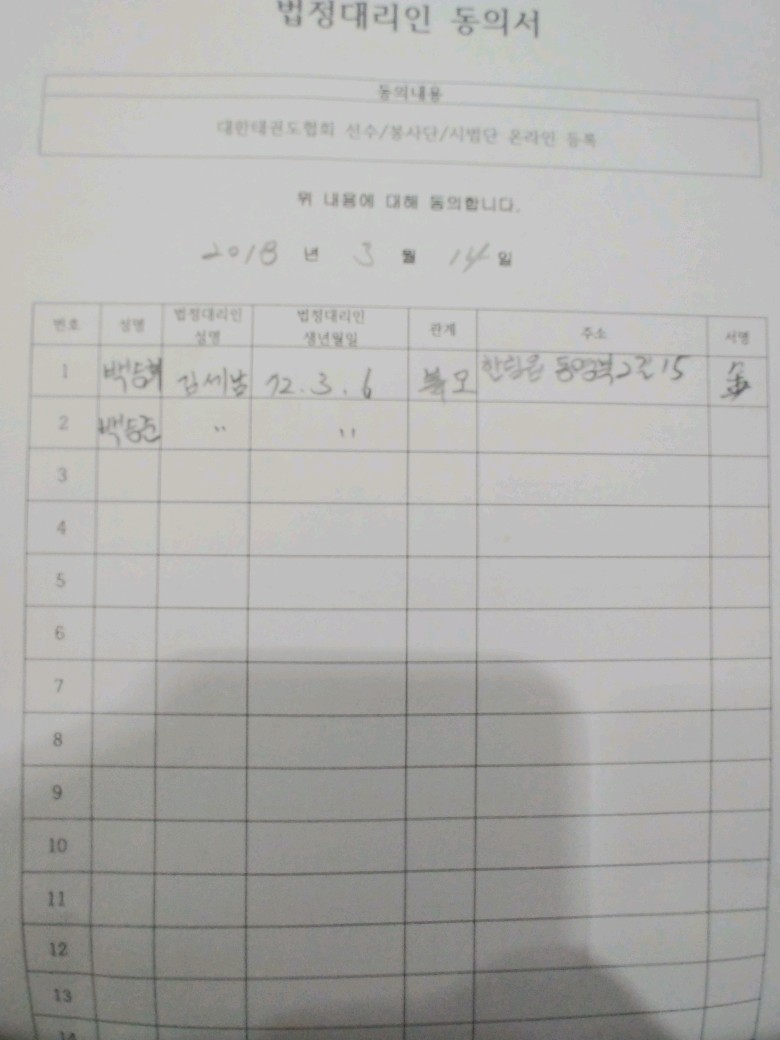 법정대리인 동의서
동의내용
대한태권도협회 선수/봉사단/시범단 온라인 등록
위 내용에 대해 동의합니다.
2018 년 3 월 14 일
번호 성명 법정대리인 성명 법정대리인 생년월일 관계 주소 서명
1 김세남 72.3.6 모 한림읍 15
2 백승준 〃 〃
3
4
5
6
7
8
9
10
11
12
13
14